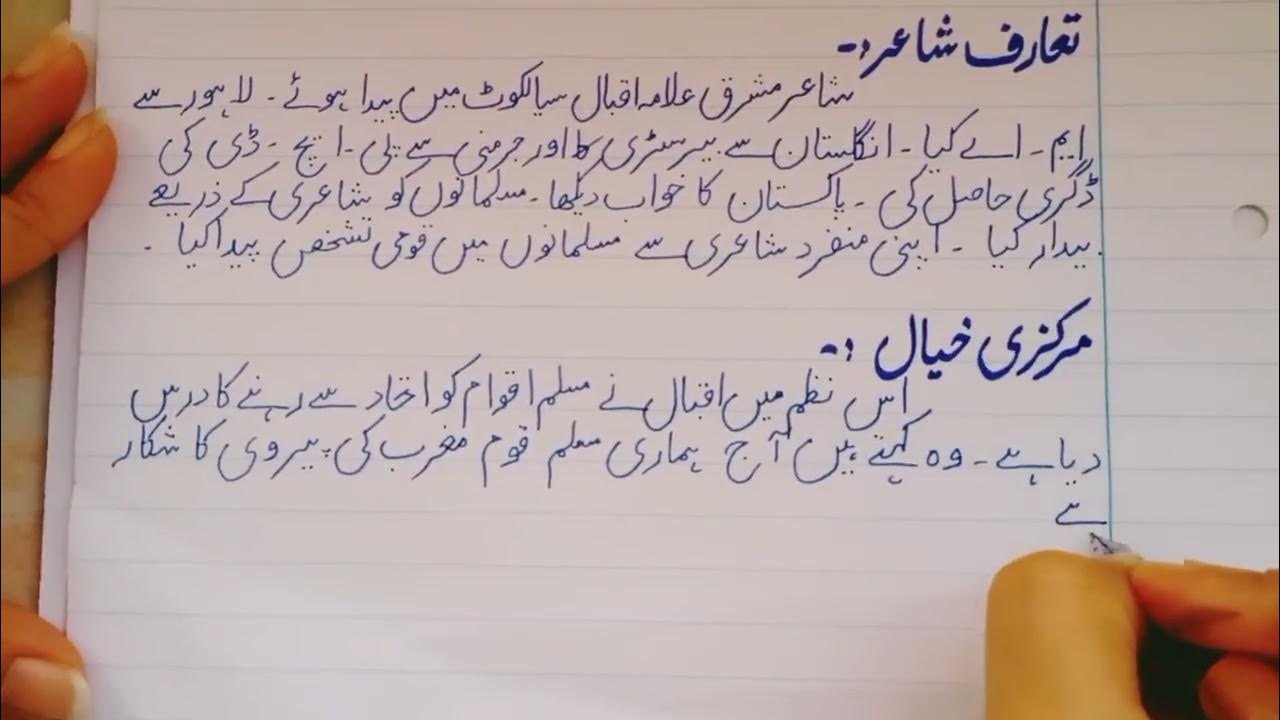 تعارف شاعر:-
شاعر مشرق علامہ اقبال سیالکوٹ میں پیدا ہوئے۔ لاہور سے
ایم۔ اے کیا۔ انگلستان سے بیرسٹری اور جرمنی سے پی۔ ایچ۔ ڈی کی
ڈگری حاصل کی۔ پاکستان کا خواب دیکھا۔ مسلمانوں کو شاعری کے ذریعے
بیدار کیا۔ اپنی منفرد شاعری سے مسلمانوں میں قومی تشخص پیدا کیا۔
مرکزی خیال:-
اس نظم میں اقبال نے مسلم اقوام کو اتحاد سے رہنے کا درس
دیا ہے۔ وہ کہتے ہیں آج ہماری مسلم قوم مغرب کی پیروی کا شکار
ہے